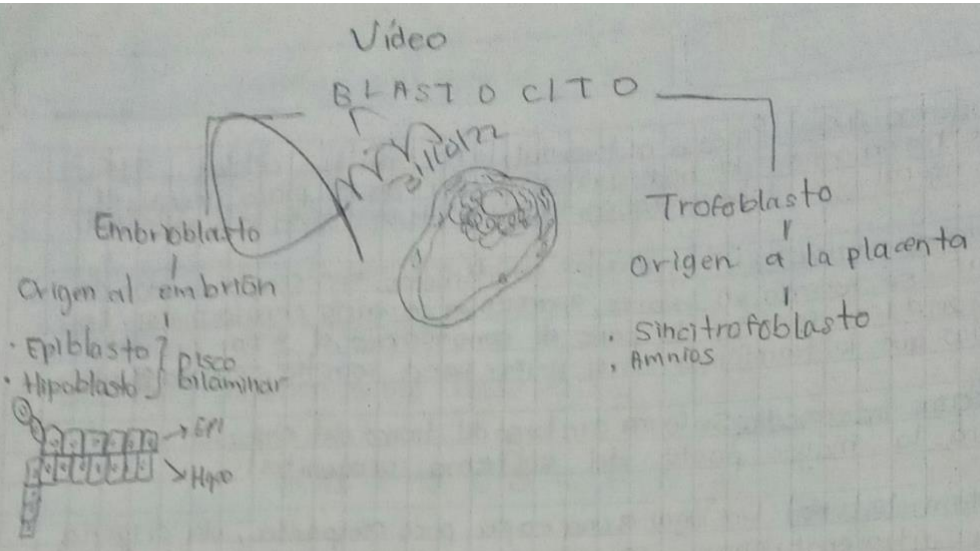 Vídeo
BLASTOCITO
Embrioblasto
Origen al embrión
· Epiblasto
· Hipoblasto
Disco
bilaminar
→ EPI
→ Hipo
Trofoblasto
Origen a la placenta
· Sincitrofoblasto
· Amnios